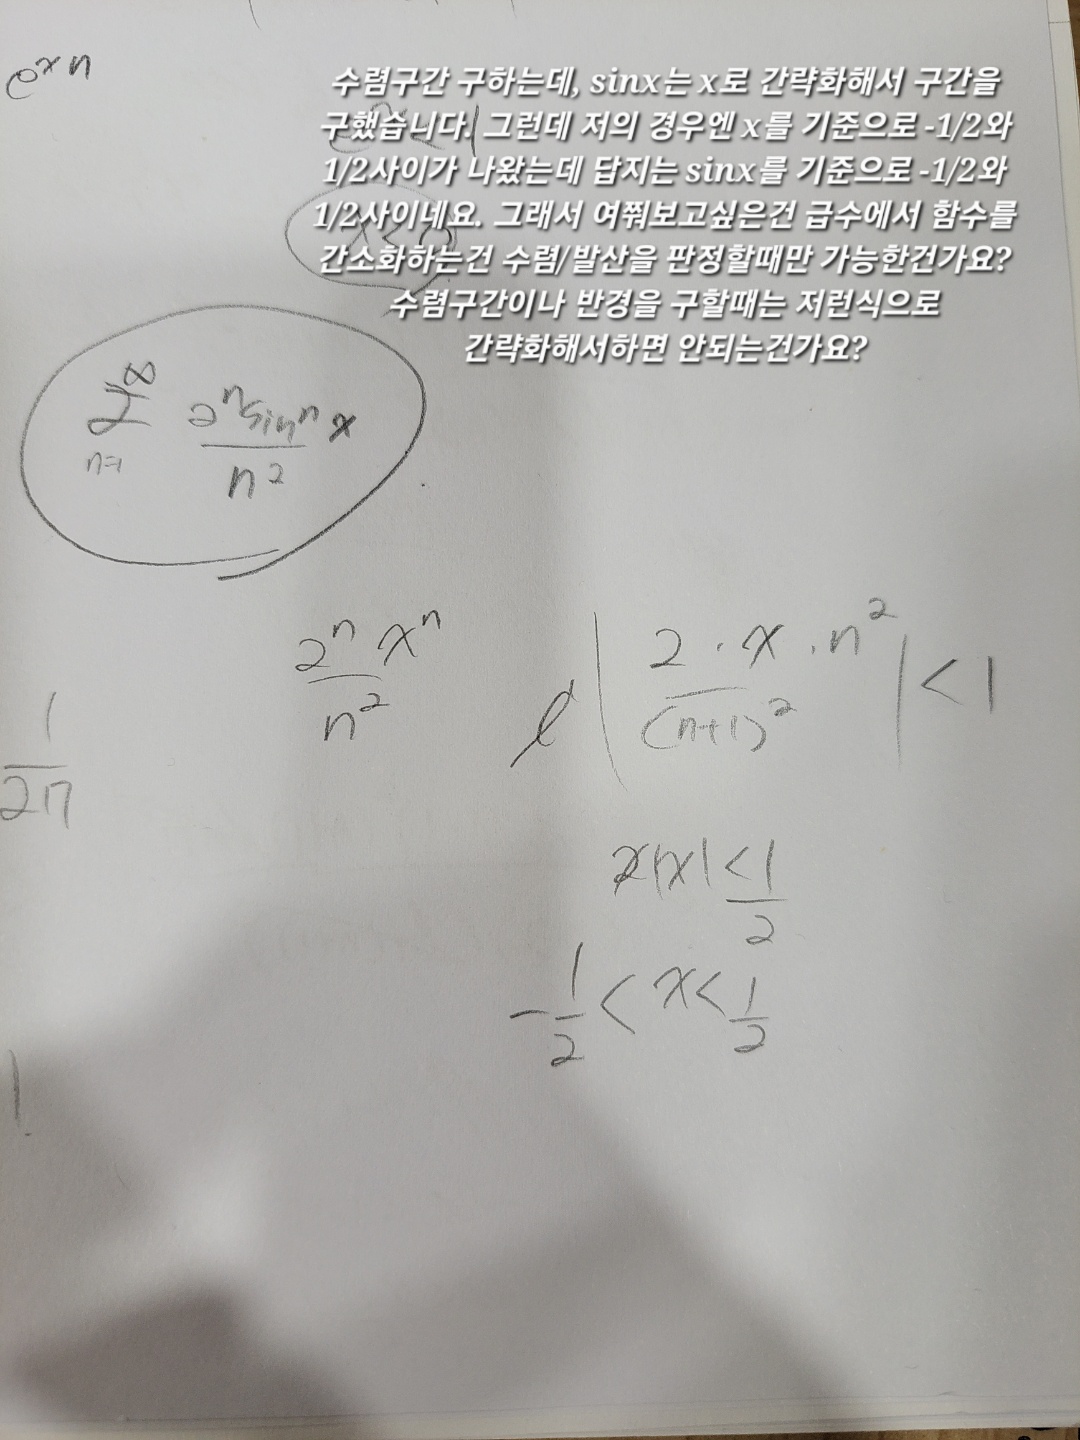 e^{xn}
수렴구간 구하는데, sinx는 x로 간략화해서 구간을
구했습니다. 그런데 저의 경우엔 x를 기준으로 -1/2와
1/2사이가 나왔는데 답지는 sinx를 기준으로 -1/2와
1/2사이네요. 그래서 여쭤보고싶은건 급수에서 함수를
간소화하는건 수렴/발산을 판정할때만 가능한건가요?
수렴구간이나 반경을 구할때는 저런식으로
간략화해서하면 안되는건가요?
\sum_{n=1}^{∞} \frac{2^n sin^n x}{n^2}
\frac{2^n x^n}{n^2}
l | \frac{2 · x · n^2}{(n+1)^2} | < 1
\frac{1}{2n}
|x| < \frac{1}{2}
-\frac{1}{2} < x < \frac{1}{2}